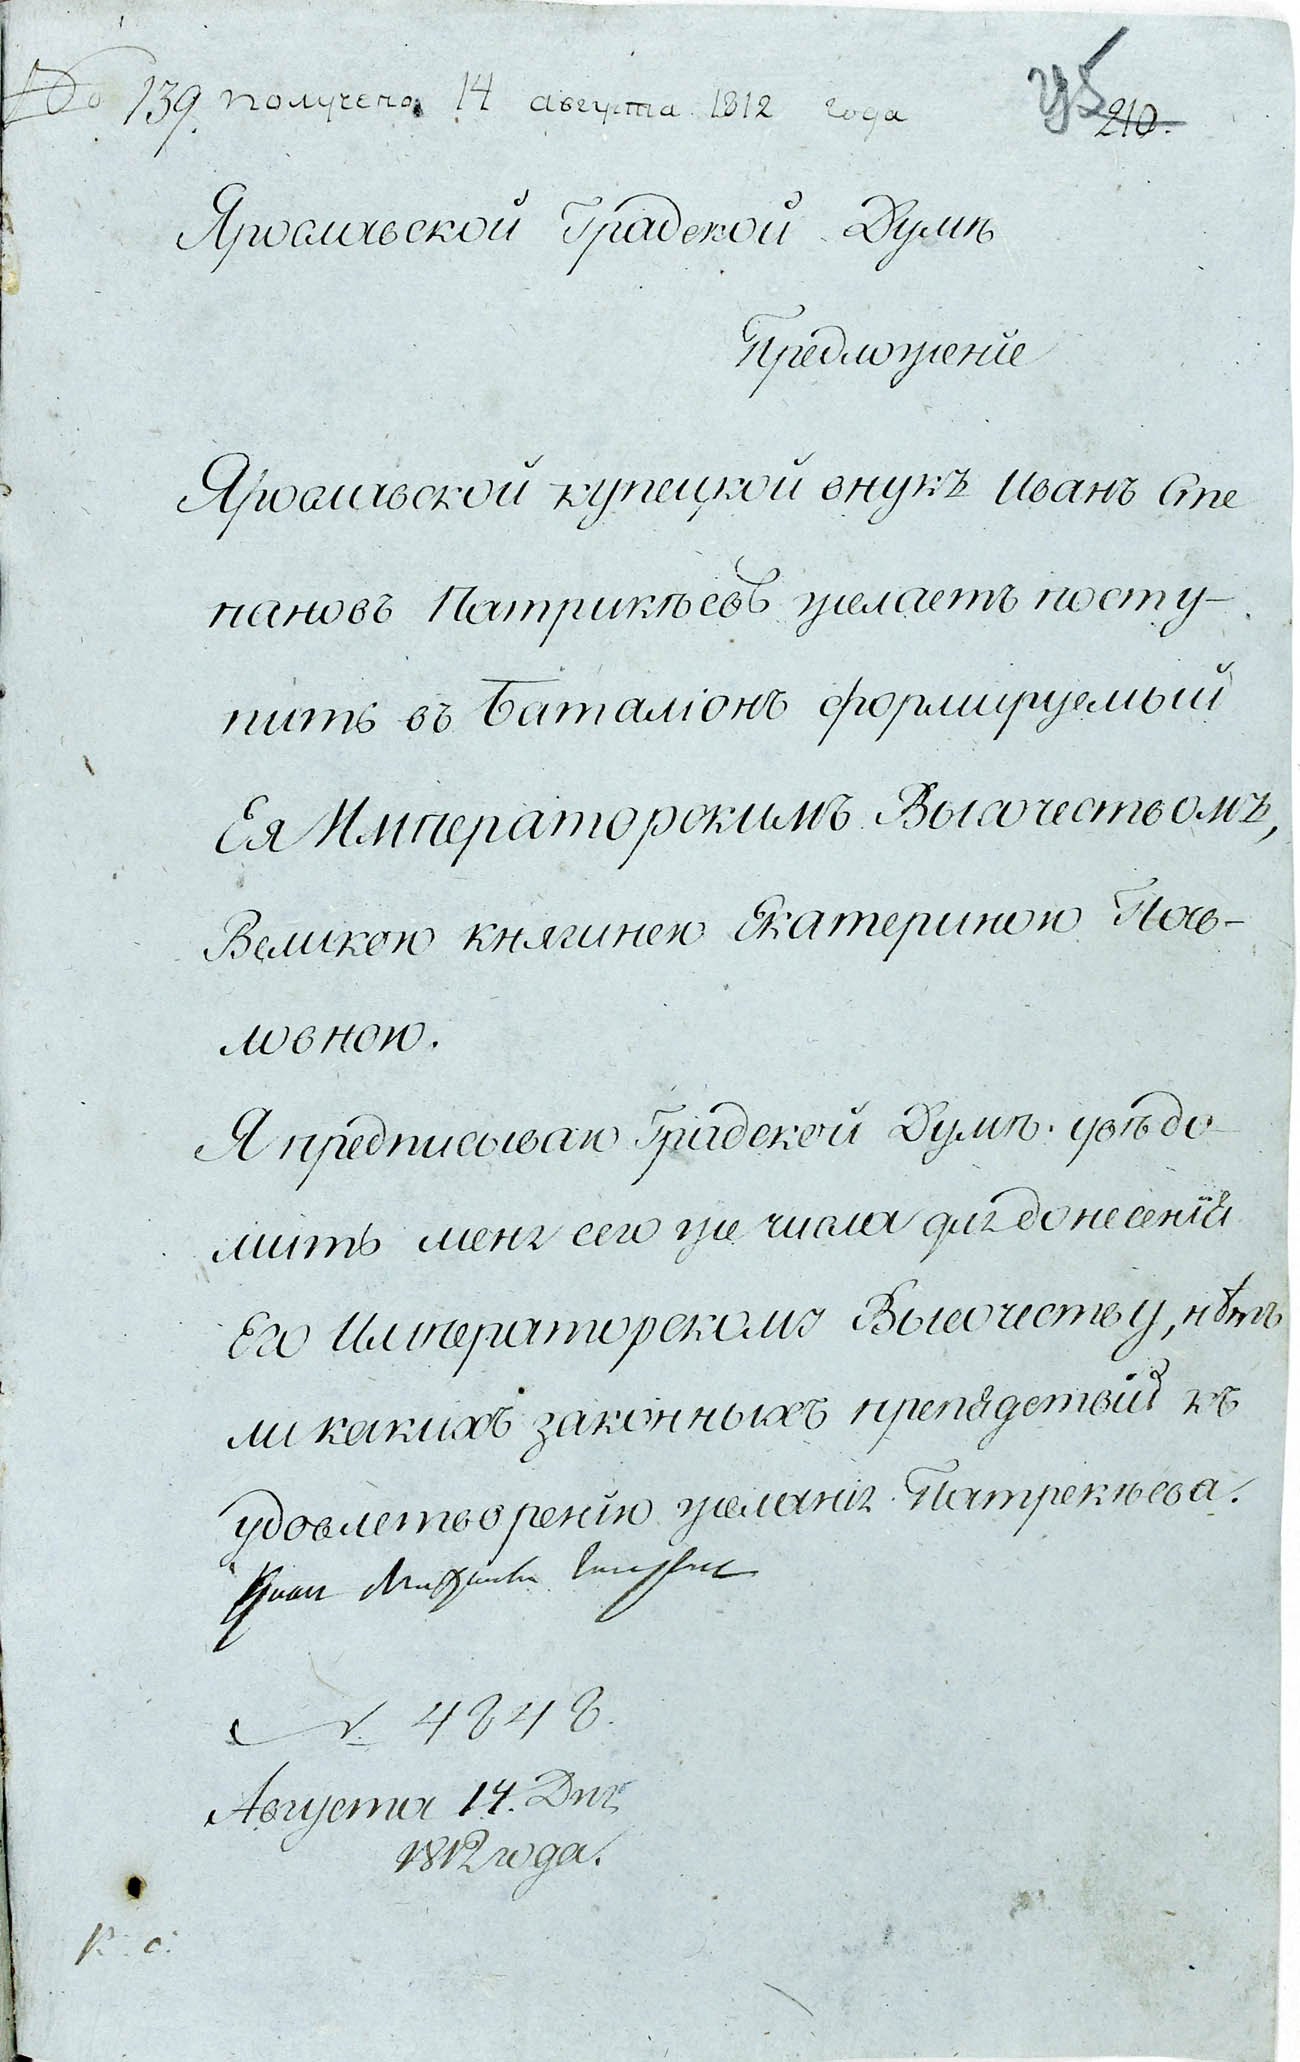 139. получено 14 августа 1812 года
210.
Ярославской Градской Думѣ
Предложеніе
Ярославской купецкой внукъ Иванъ Сте
пановъ Патрикѣевъ желаетъ посту-
пить въ Баталіонъ формируемый
Ея Императорскимъ Высочествомъ,
Великою княгинею Екатериною Пав-
ловною.
Я предписываю Градской Думѣ. увѣдо-
мить меня сего же числа для донесеній
Его Императорскому Высочеству, нѣтъ
ли какихъ законныхъ препядствій къ
удовлетворенію желанія Патрекѣева.
№ 4848.
Августа 14. Дня
1812 года.